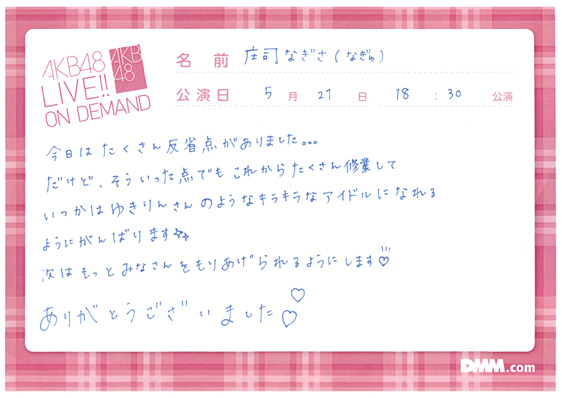 AKB48
LIVE!!
ON DEMAND
AKB
48
名前 庄司なぎさ(なぎゅ)
公演日 5月21日 18:30 公演
今日はたくさん反省点がありました。。。
だけど、そういった点でもこれからたくさん修業して
いつかはゆきりんさんのようなキラキラなアイドルになれる
ようにがんばります
次はもっとみなさんをもりあげられるようにします♡
ありがとうございました♡♡
DMM.com